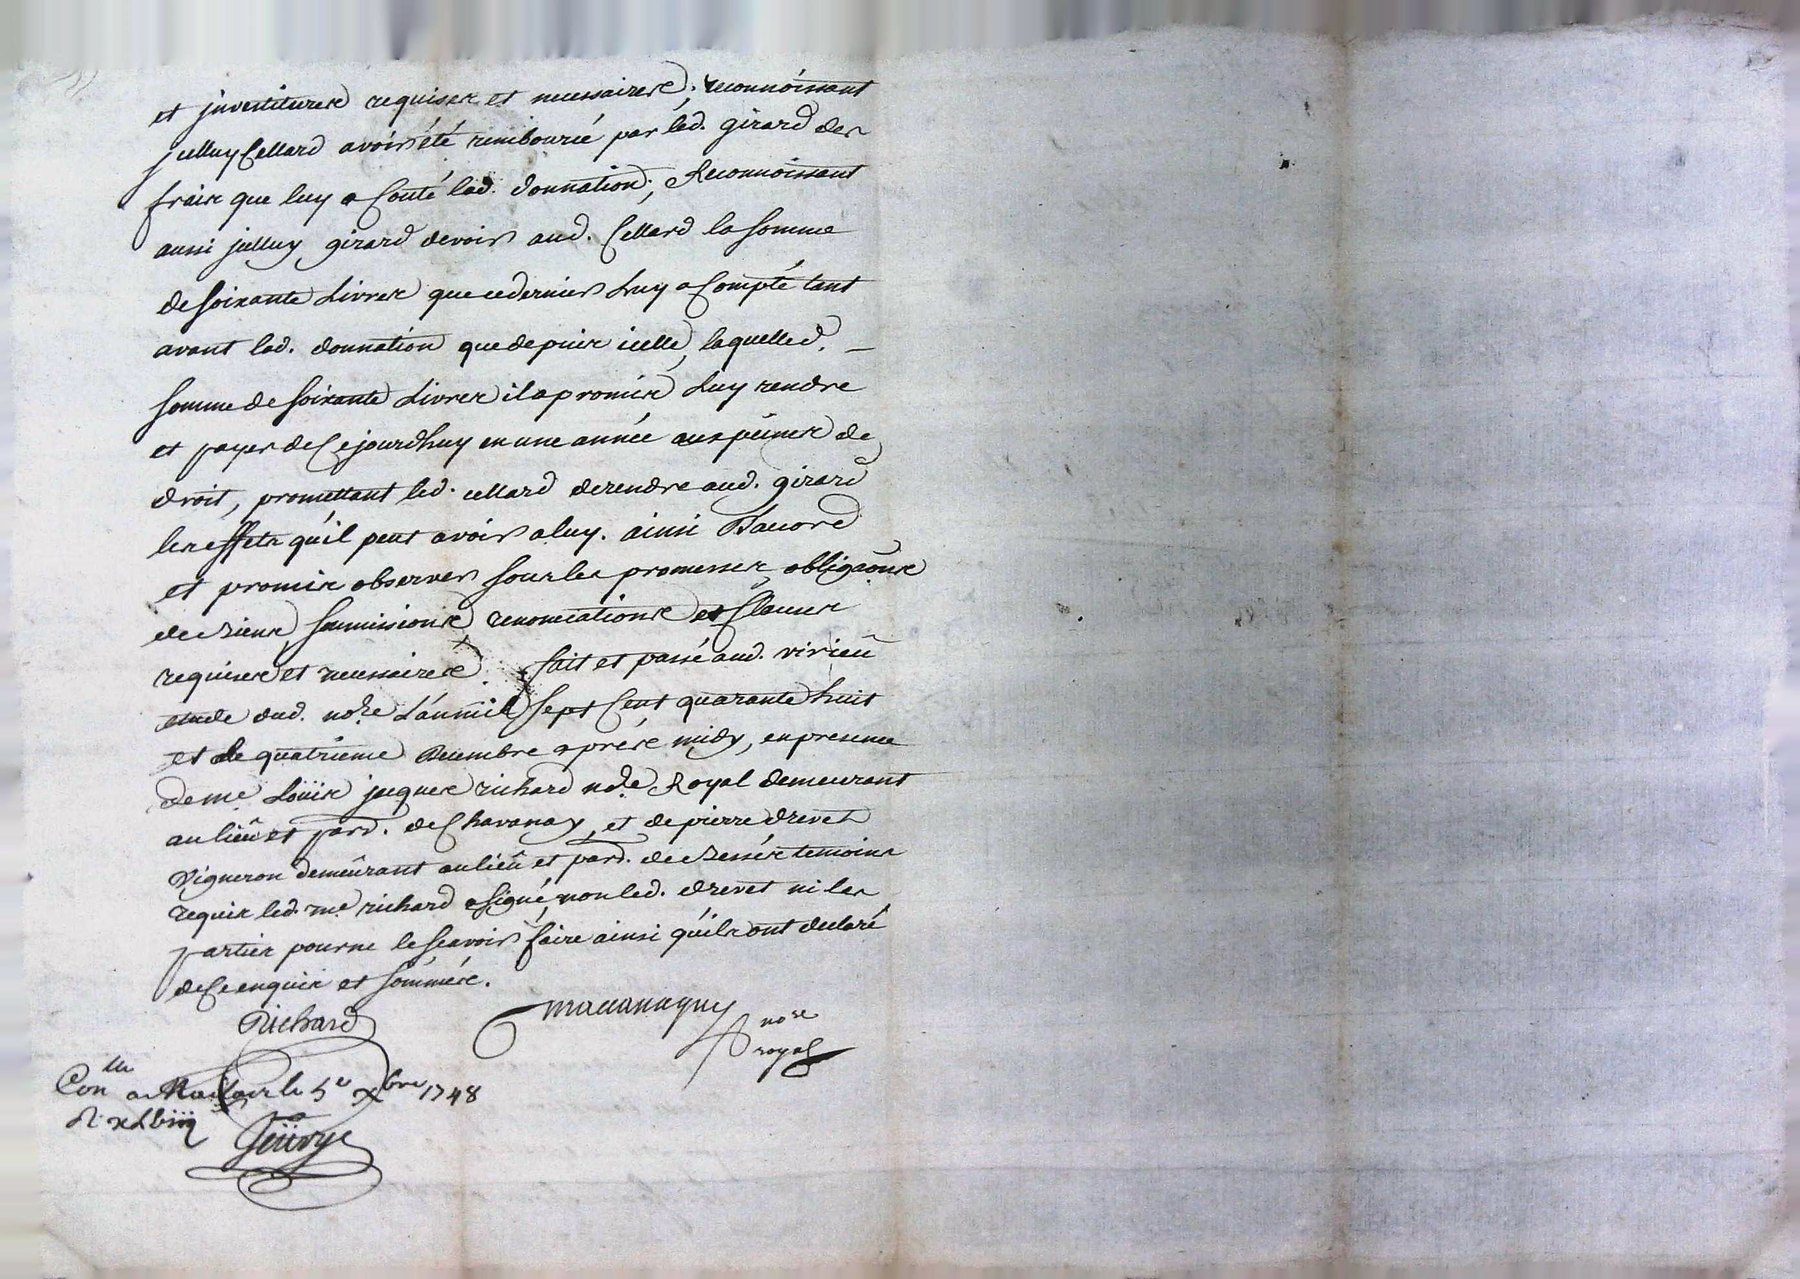 et jnvestitures requises et necessaires; reconnoissant
jcelluy Cellard avoir été remboursé par led. girard des
frais que luy a Couté lad. donnation; Reconnoissant
aussi jcelluy girard devoir aud. Cellard la somme
de soixante Livres que ce dernier Luy a Compté tant
avant lad. donnation que depuis icelle, laquelled.
somme de soixante Livres il a promis Luy rendre
et payer de Cejourdhuy en une année aux peines de
droit, promettant led. cellard de rendre aud. girard
les effets qu'il peut avoir a luy. ainsi Dacord
et promis observer sous les promesses, obligaõns
de Biens, soumissions renonciations et Clauses
requises et necessaires. fait et passé aud. virieû
etude dud. nore L'an mil sept Cent quarante huit
et le quatrieme Decembre aprés midy, en presence
de me Loüis jacques richard nore Royal demeurant
au lieû et parr. de Chavanay, et de pierre drevet
vigneron demeûrant au lieû et parr. de Bessés temoins
requis led. me richard a signé, non led. drevet ni les
parties pour ne le scavoir faire ainsi qu'ils ont declaré
de Ce enquis et sommés.
Richard
nore
royal
Conlle a le 5e Xbre 1748